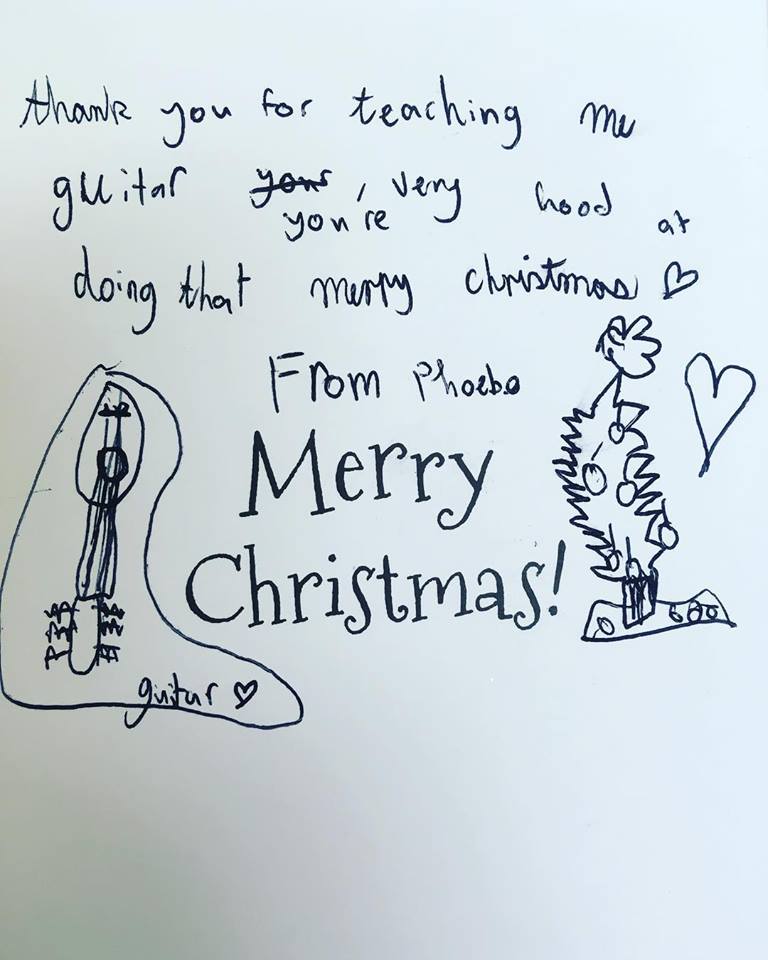 thank you for teaching me
guitar yours, very hood at
you're
doing that merry christmas
From Phoebe
Merry
Christmas!
guitar